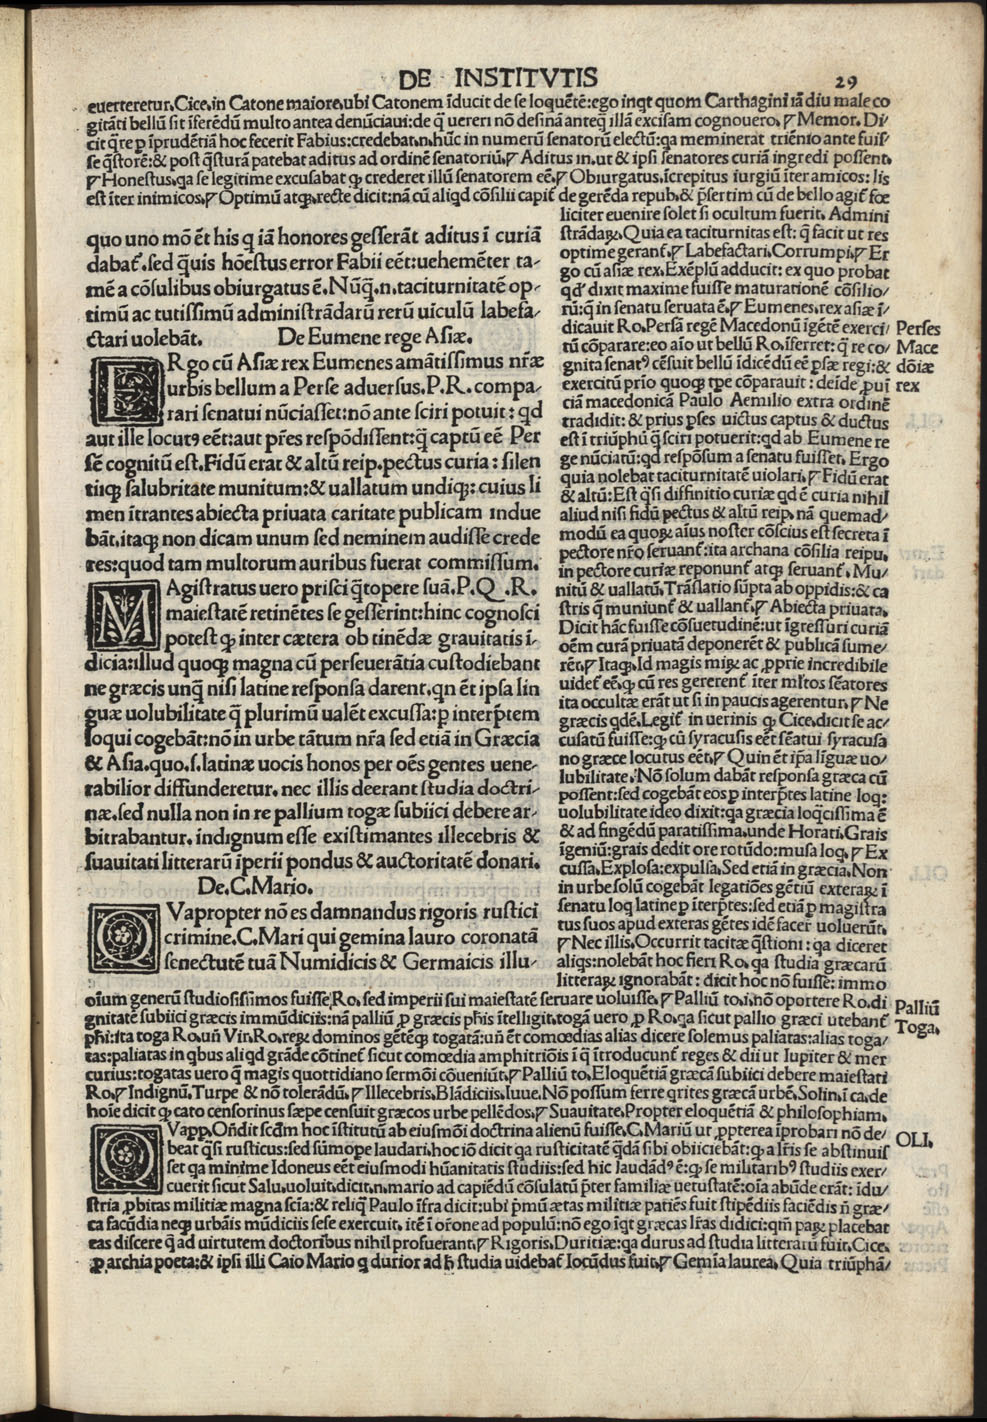 DE INSTITVTIS
29
euerteretur. Cice. in Catone maiore. ubi Catonem īducit de se loquētē: ego inqt quom Carthagini iā diu male co
gitāti bellū sit īferēdū multo antea denūciaui: de q̄ uereri nō desinā anteq̄ illā excisam cognouero. ꝑ Memor. Di/
cit q̄re ꝑ īprudētiā hoc fecerit Fabius: credebat. n. hūc in numerū senatorū electū: qa meminerat triēnio ante fuis/
se q̄storē: & post q̄sturā patebat aditus ad ordinē senatoriū. ꝑ Aditus in. ut & ipsi senatores curiā ingredi possent.
ꝑ Honestus. qa se legitime excusabat ꝙ crederet illū senatorem eē. ꝑ Obiurgatus. īcrepitus iurgiū īter amicos: lis
est īter inimicos. ꝑ Optimū atqꝫ. recte dicit: nā cū aliqd cōsilii capit̄ de gerēda repub. & p̄sertim cū de bello agit̄ fœ
quo uno mō ēt his q iā honores gesserāt aditus ī curiā
dabat̄. sed q̄uis hōestus error Fabii eēt: uehemēter ta-
mē a cōsulibus obiurgatus ē. Nūq̄. n. taciturnitatē op-
timū ac tutissimū administrādarū rerū uiculū labefa-
ctari uolebāt. De Eumene rege Asiæ.
ERgo cū Asiæ rex Eumenes amātissimus nr̄æ
urbis bellum a Perse aduersus. P. R. compa-
rari senatui nūciasset: nō ante sciri potuit: qd
aut ille locutꝰ eēt: aut pr̄es respōdissent: q̄ captū eē Per
sē cognitū est. Fidū erat & altū reip. pectus curia: silen
tiiqꝫ salubritate munitum: & uallatum undiqꝫ: cuius li
men ītrantes abiecta priuata caritate publicam indue
bāt. itaqꝫ non dicam unum sed neminem audisse crede
res: quod tam multorum auribus fuerat commissum.
MAgistratus uero prisci q̄topere suā. P. Q. R.
maiestatē retinētes se gesserint: hinc cognosci
potest ꝙ inter cætera obtinēdæ grauitatis ī-
dicia: illud quoqꝫ magna cū perseuerātia custodiebant
ne græcis unq̄ nisi latine responsa darent. qn ēt ipsa lin
guæ uolubilitate q̄ plurimū ualēt excussa: ꝑ interp̄tem
loqui cogebāt: nō in urbe tātum nr̄a sed etiā in Græcia
& Asia. quo. s. latinæ uocis honos per oēs gentes uene-
rabilior diffunderetur. nec illis deerant studia doctri-
næ. sed nulla non in re pallium togæ subiici debere ar-
bitrabantur. indignum esse existimantes illecebris &
suauitati litterarū īperii pondus & auctoritatē donari.
De. C. Mario.
QVapropter nō es damnandus rigoris rustici
crimine. C. Mari qui gemina lauro coronatā
senectutē tuā Numidicis & Germaicis illu-
liciter euenire solet si ocultum fuerit. Admini
strādaꝝ. Quia ea taciturnitas est: q̄ facit ut res
optime gerant̄. ꝑ Labefactari. Corrumpi. ꝑ Er
go cū asiæ rex. Exēplū adducit: ex quo probat
qd̄ dixit maxime fuisse maturationē cōsilio/
rū: q̄ in senatu seruata ē. ꝑ Eumenes. rex asiæ ī/
dicauit Ro. Persā regē Macedonū īgētē exerci/
tū cōparare: eo aīo ut bellū Ro. īferret: q̄ re co/
gnita senatꝰ cēsuit bellū īdicēdū eē ꝑsæ regi: &
exercitū prīo quoqꝫ tꝑe cōparauit: deīde ꝓuī
ciā macedonicā Paulo Aemilio extra ordinē
tradidit: & prius ꝑses uictus captus & ductus
est ī triūphū q̄ sciri potuerit: qd ab Eumene re
ge nūciatū: qd respōsum a senatu fuisset. Ergo
quia nolebat taciturnitatē uiolari. ꝑ Fidū erat
& altū: Est q̄si diffinitio curiæ qd ē curia nihil
aliud nisi fidū pectus & altū reip. nā quemad/
modū ea quoꝝ aīus noster cōscius est secreta ī
pectore nr̄o seruant̄: ita archana cōsilia reipu.
in pectore curiæ reponunt̄ atqꝫ seruant̄. Mu/
nitū & uallatū. Trāslatio sūpta ab oppidis: & ca
stris q̄ muniunt̄ & uallant̄. ꝑ Abiecta priuata.
Dicit hāc fuisse cōsuetudinē: ut īgressuri curiā
oēm curā priuatā deponerēt & publicā sume/
rēt. ꝑ Itaqꝫ. Id magis miꝝ ac ꝓprie incredibile
uidet̄ eē. ꝙ cū res gererent̄ īter ml̄tos sēatores
ita occultæ erāt ut si in paucis agerentur. ꝑ Ne
græcis qdē. Legit̄ in uerinis ꝙ Cice. dicit se ac/
cusatū fuisse: ꝙ cū syracusis eēt sēatui syracusa
no græce locutus eēt. ꝑ Quin ēt ipā līguæ uo/
lubilitate. Nō solum dabāt responsa græca cū
possent: sed cogebāt eos ꝑ interp̄tes latine loq:
uolubilitate ideo dixit: qa græcia loq̄cissima ē
& ad fingēdū paratissima. unde Horati. Grais
īgeniū: grais dedit ore rotūdo: musa loq. ꝑ Ex
cussa. Explosa: expulsa. Sed etiā in græcia. Non
in urbe solū cogebāt legatiōes gētiū exteraꝝ ī
senatu loq latine ꝑ īterp̄tes: sed etiā ꝑ magistra
tus suos apud exteras gētes idē facer uoluerūt.
ꝑ Nec illis. Occurrit tacitæ q̄stioni: qa diceret
aliqs: nolebāt hoc fieri Ro. qa studia græcarū
litteraꝝ ignorabāt: dicit hoc nō fuisse: immo
Perses
Mace
dōiæ
rex
oīum generū studiosissimos fuisse Ro. sed imperii sui maiestatē seruare uoluisse. ꝑ Palliū to. i. nō oportere Ro. di
gnitatē subiici græcis immūdiciis: nā palliū ꝓ græcis ph̄is ītelligit. togā uero ꝓ Ro. qa sicut pallio græci utebant̄
ph̄i: ita toga Ro. uñ Vir. Ro. reꝝ dominos gētēqꝫ togatā: uñ ēt comœdias alias dicere solemus paliatas: alias toga/
tas: paliatas in qbus aliqd grāde cōtinet̄ sicut comœdia amphitriōis ī q̄ ītroducunt̄ reges & dii ut Iupiter & mer
curius: togatas uero q̄ magis quottidiano sermōi cōueniūt. ꝑ Palliū to. Eloquētiā græcā subiici debere maiestati
Ro. ꝑ Indignū. Turpe & nō tolerādū. ꝑ Illecebris. Blādiciis. Iuue. Nō possum ferre qrites græcā urbē. Solin. ī ca. de
hoīe dicit ꝙ cato censorinus sæpe censuit græcos urbe pellēdos. ꝑ Suauitate. Propter eloquētiā & philosophiam.
Palliū
Toga.
QVaꝓꝑ. Oñdit scd̄m hoc īstitutū ab eiusmōi doctrina alienū fuisse. C. Mariū ut ꝓpterea īprobari nō de/
beat q̄si rusticus: sed sūmope laudari. hoc iō dicit qa rusticitatē q̄dā sibi obiiciebāt: ꝙ a lr̄is se abstinuis
set qa minime Idoneus eēt eiusmodi hūanitatis studiis: sed hic laudādꝰ ē: ꝙ se militaribꝰ studiis exer/
cuerit sicut Salu. uoluit. dicit. n. mario ad capiēdū cōsulatū p̄ter familiæ uetustatē: oīa abūde erāt: īdu/
stria ꝓbitas militiæ magna scīa: & reliq̄ Paulo īfra dicit: ubi p̄mū ætas militiæ patiēs fuit stipēdiis faciēdis ñ græ/
ca facūdia neqꝫ urbāis mūdiciis sese exercuit. itē ī or̄one ad populū: nō ego īqt græcas lr̄as didici: qm̄ paꝝ placebat
eas discere q̄ ad uirtutem doctoribus nihil profuerant. ꝑ Rigoris. Duritiæ: qa durus ad studia litterarū fuit. Cice.
ꝓ archia poeta: & ipsi illi Caio Mario q durior ad h̄ studia uidebat̄ Iocūdus fuit. ꝑ Gemīa laurea. Quia triūphā/
OLI.